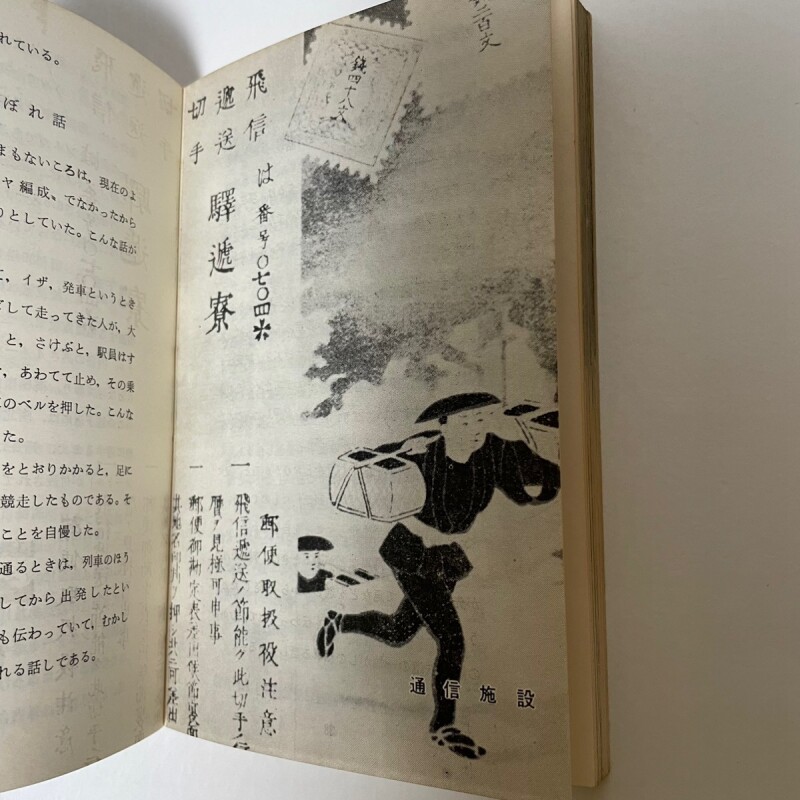 れている。
ぼれ話
まもないころは，現在のよ
ヤ編成〟でなかったから
りとしていた。こんな話が
て，イザ，発車というとき
どして走ってきた人が，大
と，さけぶと，駅員はす
，あわてて止め，その乗
のベルを押した。こんな
た。
をとおりかかると，足に
競走したものである。そ
ことを自慢した。
通るときは，列車のほう
してから出発したとい
も伝わっていて，むかし
れる話しである。
二百文
銭四十八文
飛信
逓送
切手
は番号〇七〇四
驛逓寮
郵便取扱役注意
一 飛信逓送ノ節能ク此切手ノ
見様可申事
一 郵便御勘定表
通信施設